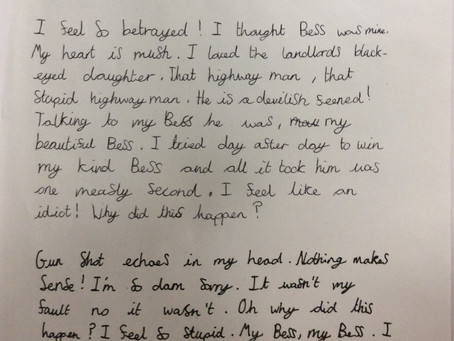 I feel so betrayed! I thought Bess was mine.
My heart is mush. I loved the landlords black-
eyed daughter. That highway man, that
stupid highway man. He is a devilish feened!
Talking to my Bess he was, my
beautiful Bess. I tried day after day to win
my kind Bess and all it took him was
one measly second. I feel like an
idiot! Why did this happen?
Gun shot echoes in my head. Nothing makes
sense! I'm so dam sorry. It wasn't my
fault no it wasn't. Oh why did this
happen? I feel so stupid. My Bess, my Bess. I